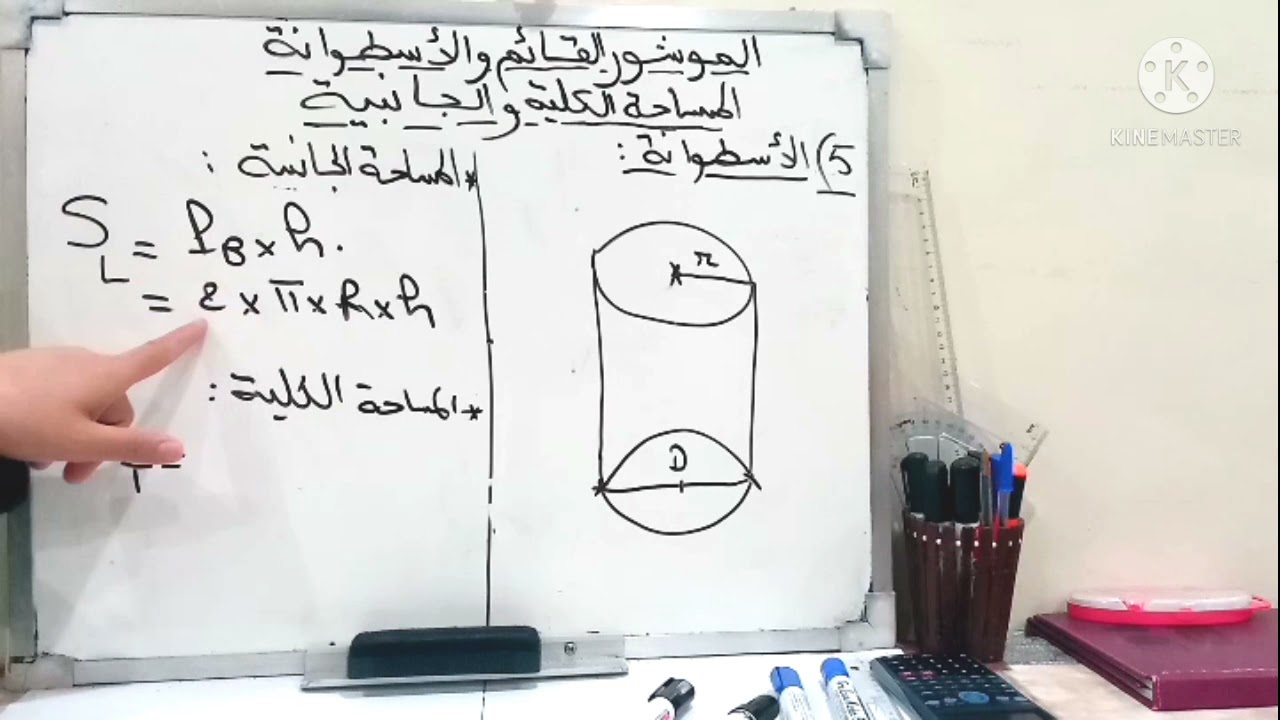 الموشور القائم والأسطوانة
المساحة الكلية والجانبية
5) الأسطوانة :
r
D
* المساحة الجانبية :
S_L = P_B × h.
= 2 × π × R × h
* المساحة الكلية :
K
KINEMASTER